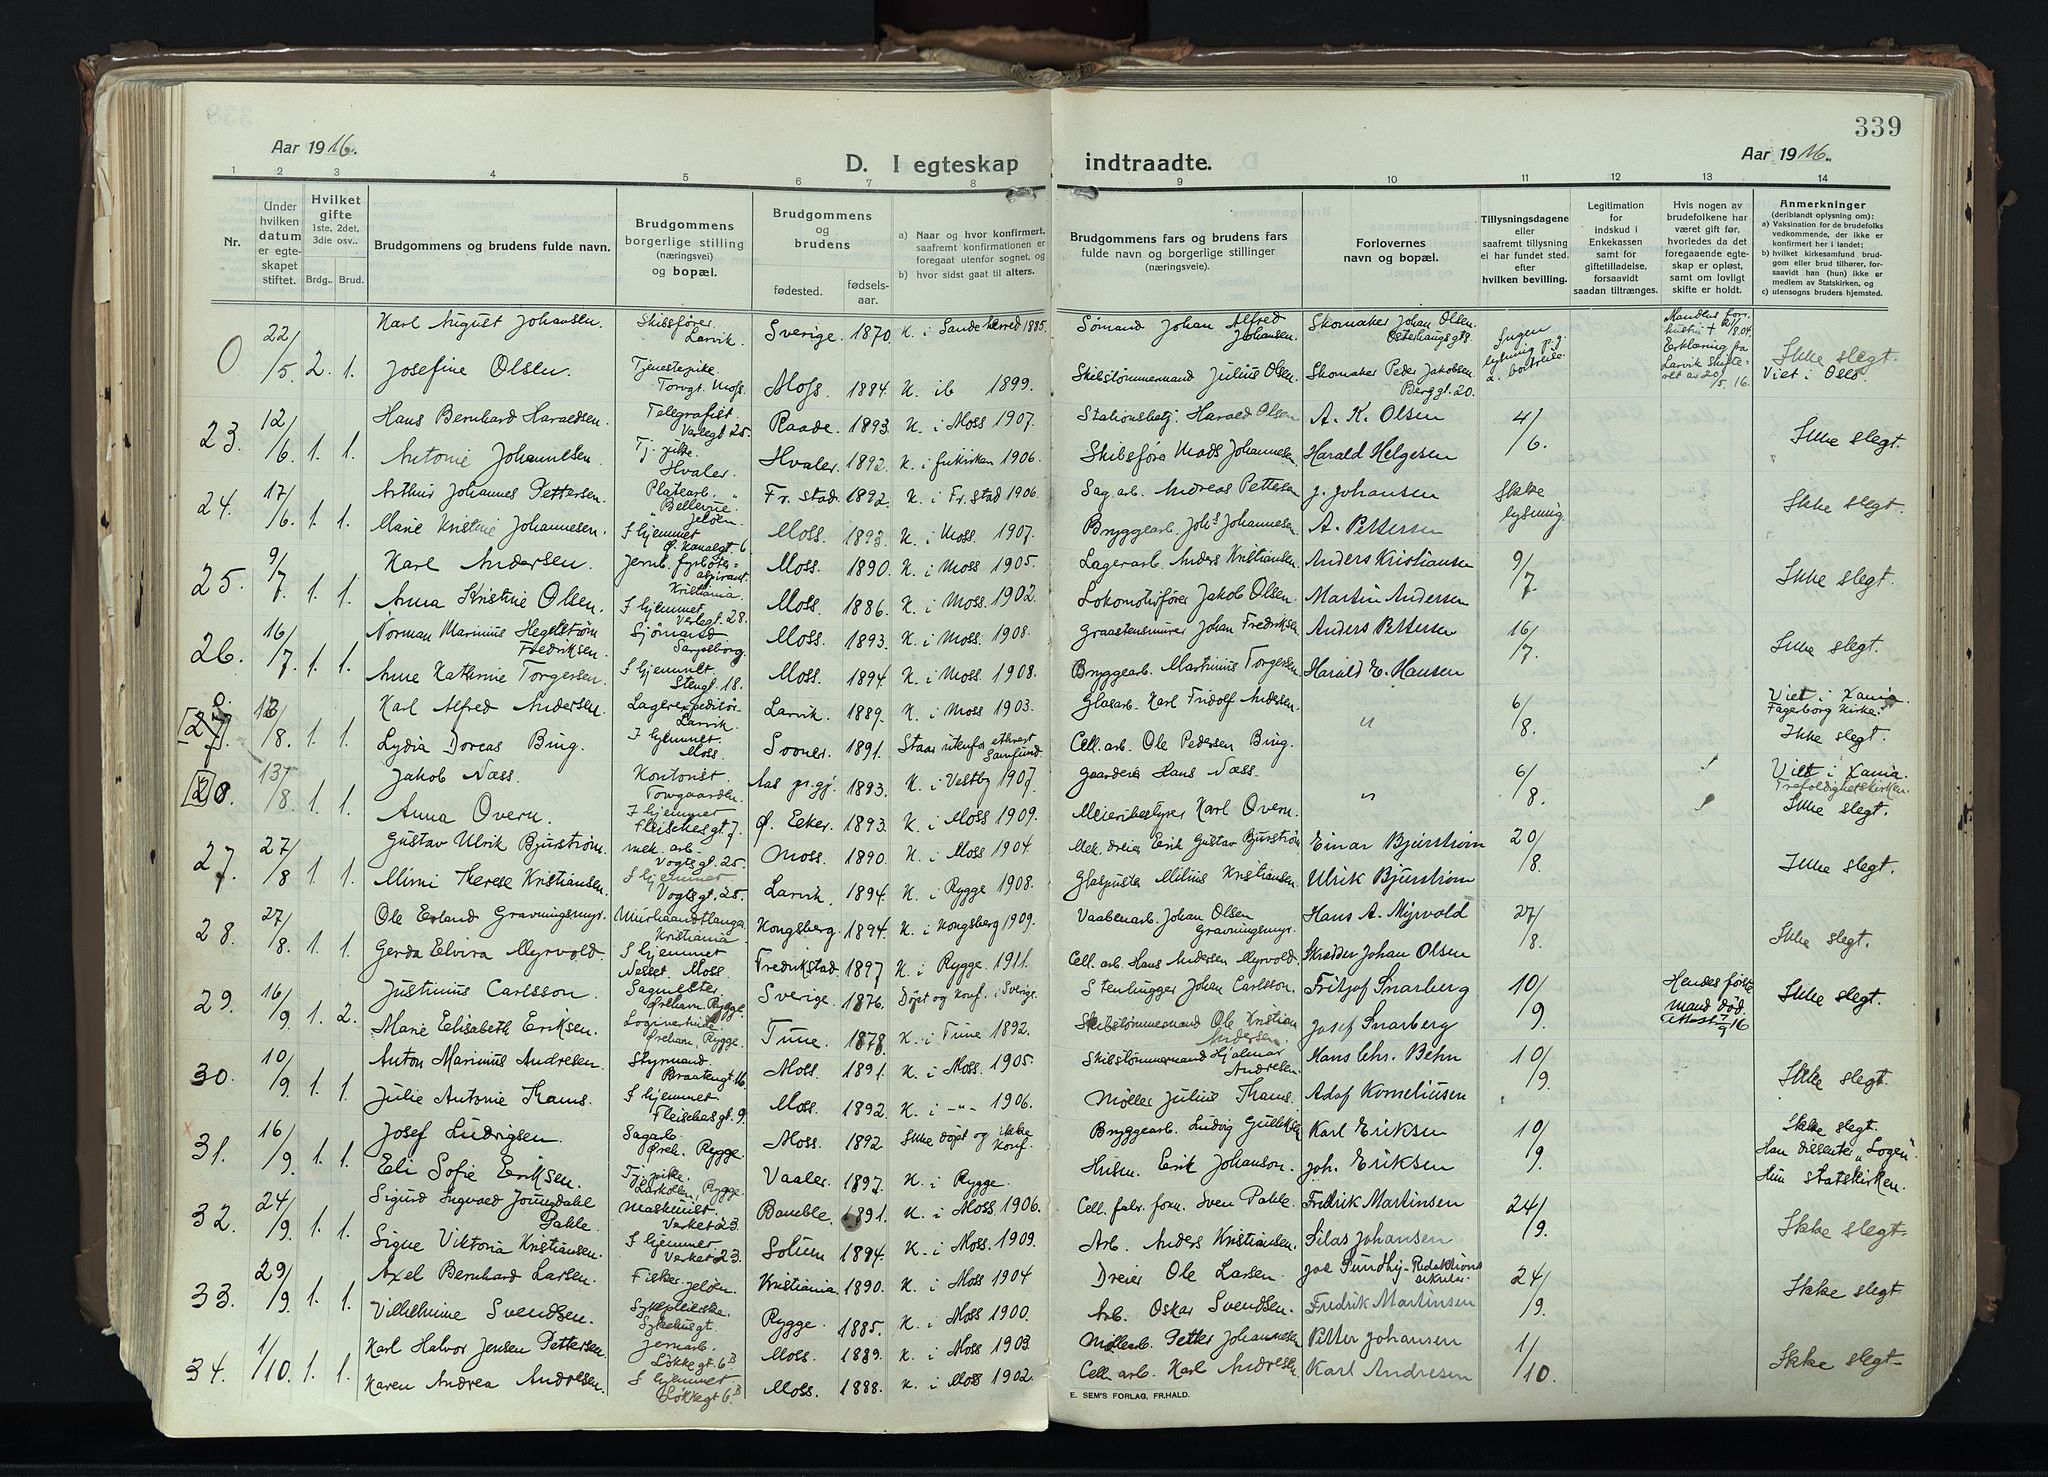 339
Aar 1916.
D. I egteskap indtraadte.
Aar 1916.
1 2 3 4 5 6 7 8 9 10 11 12 13 14
Nr.
Under hvilken datum er egteskapet stiftet.
Hvilket gifte 1ste, 2det, 3die osv..
Brdg.. Brud.
Brudgommens og brudens fulde navn.
Brudgommens borgerlige stilling (næringsvei) og bopæl.
Brudgommens og brudens
fødested. fødselsaar.
a) Naar og hvor konfirmert, saafremt konfirmationen er foregaat utenfor sognet, og
b) hvor sidst gaat til alters.
Brudgommens fars og brudens fars fulde navn og borgerlige stillinger (næringsveie).
Forlovernes navn og bopæl.
Tillysningsdagene eller saafremt tillysning ei har fundet sted. efter hvilken bevilling.
Legitimation for indskud i Enkekassen samt for giftetilladelse, forsaavidt saadan tiltrænges.
Hvis nogen av brudefolkene har været gift før, hvorledes da det foregaaende egteskap er opløst, samt om lovligt skifte er holdt.
Anmerkninger (deriblandt oplysning om):
a) Vaksination for de brudefolks vedkommende, der ikke er konfirmert her i landet;
b) hvilket kirkesamfund brudgom eller brud tilhører, forsaavidt han (hun) ikke er medlem av Statskirken, og
c) utensogns bruders hjemsted.
0 22/5 2. 1. Karl August Johansen. Skibsfører. Larvik. Sverige. 1870. K. i Sandeherred 1885. Sømand Johan Alfred Johansen. Skomaker Johan Olsen. Ingen lysning p.g.a.
Josefine Olsen. Tjenestepike Torvgt. Moss. Moss. 1884. K. ib 1899. Skibstømmermand Julius Olsen. Skomaker Peder Jakobsen Berggt. 20. Erklæring fra Larvik Skifteret av 20/5 16. Ikke slegt. Viet i Oslo.
23. 12/6. 1. 1. Hans Bernhard Haraldsen. Telegrafist. Varlegt 25. Raade. 1893. K. i Moss 1907. Harald Olsen A. K. Olsen 4/6.
Antonie Johannesen. Tj. pike. Hvaler. Hvaler. 1892. K. i frikirken 1906. Skibsfører Mads Johannesen. Harald Helgesen Ikke slegt.
24. 17/6. 1. 1. Arthur Johannes Pettersen. Platearb. Bellevue. Jeløen. Fr.stad 1892. K. i Fr.stad 1906. Sag.arb. Andreas Pettersen J. Johansen Ikke lysning.
Marie Kristine Johannesen. I hjemmet Ø. Kanalgt. 6 Moss. 1893. K. i Moss. 1907. Bryggearb. Johs Johannesen A. Pettersen Ikke slegt.
25. 9/7. 1. 1. Karl Andersen. Jernb. fyrbøteraspirant. Kristiania Moss. 1890. K. i Moss 1905. Lagerarb. Anders Kristiansen. Anders Kristiansen 9/7.
Anna Kristine Olsen. I hjemmet Verlegt. 28. Moss. 1886. K. i Moss. 1902. Lokomotivfører Jakob Olsen. Martin Andersen Ikke slegt.
26. 16/7. 1. 1. Norman Marinius Hegelstrøm Fredriksen. Sjømand Sarpsborg. Moss. 1893. K. i Moss. 1908. Graastensmurer Johan Fredriksen. Anders Pettersen 16/7.
Anne Kathrine Torgersen. I hjemmet Stengt. 18. Moss. 1894. K. i Moss 1908. Bryggearb. Martinius Torgersen. Harald E. Hansen Ikke slegt.
[27]. 0. 8. 1. 1. Karl Alfred Andersen. Lagerexpeditør. Larvik. Larvik. 1889. K. i Moss 1903. Glasarb. Karl Fridolf Andersen. " 6/8. Viet i Xania. Fagerborg Kirke.
Lydia Dorcas Bing. I hjemmet Moss. Sooner. 1891. Staar utenfor ethvert Samfund. Cell. arb. Ole Pedersen Bing. Ikke slegt.
[2]8. 13/8. 1. 1. Jakob Næss. Kontorist. Torvgaarden. Aas pr.gj. 1893. K. i Vestby 1907. Gaardeier Hans Næss. " 6/8. Viet i Xania. Trefoldighetskirken.
Anna Overn. I hjemmet Fleischesgt 7. Ø. Eeker. 1893. K. i Moss 1909. Meieribestyrer Karl Overn. Ikke slegt.
27. 27/8 1. 1. Gustav Ulrik Bjurstrøm. mek. arb. Vogtsgt. 25. Moss. 1890. K. i Moss 1904. Mek. dreier Erik Gustav Bjurstrøm Einar Bjurstrøm 20/8
Mimi Therese Kristiansen. I hjemmet Vogtsgt. 25. Larvik. 1894. K. i Rygge 1908. Glaspuster Milius Kristiansen. Ulrik Bjurstrøm Ikke slegt.
28. 27/8. 1. 1. Ole Erland Gravningsmyr. Kristiania. Kongsberg. 1894. K. i Kongsberg 1909. Vaabenarb. Johan Olsen Gravningsmyr. Hans A. Myrvold 27/8.
Gerda Elvira Myrvold. I hjemmet Nesset. Moss. Fredrikstad. 1897 K. i Rygge. 1911. Cell. arb. Hans Andersen Myrvold. Skrædder Johan Olsen Ikke slegt.
29. 16/9 1. 2. Justinius Carlsson. Sagmester Ørehavn. Rygge. Sverige. 1876. Døpt og konf. i Sverige. Stenhugger Johan Carlsson. Fritjof Snarberg 10/9. Hendes første mand død. attest 7/9 16
Marie Elisabeth Eriksen. Ørehavn, Rygge. Tune. 1878. K. i Tune 1892. Skibstømmermand Ole Kristian Andersen. Josef Snarberg Ikke slegt.
30. 10/9. 1. 1. Anton Marinius Andresen. Styrmand. Braatengt 16. Moss. 1891. K. i Moss. 1905. Skibstømmermand Hjalmar Andresen. Hans Chr. Behn 10/9.
Julie Antonie Thams. I hjemmet Fleischesgt. 9. Moss. 1892. K. i -"- 1906. Møller Julius Thams. Adof Korneliusen Ikke slegt.
31. 16/9. 1. 1. Josef Ludvigsen. Sagarb. Øreh. Rygge. Moss. 1892 Ikke døpt og ikke konf. Bryggearb. Ludvig Gulliksen Karl Eriksen 10/9. Ikke slegt.
Eli Sofie Eriksen. Tj.pike. Larkollen, Rygge. Vaaler. 1897. K. i Rygge. Husm. Erik Johanson. Joh. Eriksen Han dissenter "Logen". Hun Statskirken.
32. 24/9. 1. 1. Sigurd Ingvald Jomedahl Pahle. Maskinist. Verket 23. Bamble. 1891. K. i Moss 1906. Cell. fabr. form. Sven Pahle. Fredrik Martinsen 24/9.
Signe Viktoria Kristiansen. I hjemmet Verket 23. Solum 1894. K. i Moss. 1909. Arb. Anders Kristiansen. Silas Johansen Ikke slegt.
33. 29/9. 1. 1. Axel Bernhard Larsen. Fisker. Jeløen. Kristiania. 1890. K. i Moss 1904 Dreier Ole Larsen. 24/9.
Vilhelmine Svendsen. Sykepleierske. Sykehusgt. Rygge. 1885. K. i Moss 1900. Arb. Oskar Svendsen. Fredrik Martinsen Ikke slegt
34. 1/10. 1. 1. Karl Halvor Jensen Pettersen. Jernarb. Løkkegt. 6B Moss. 1889. K. i Moss 1903. Møllearb. Petter Johannesen Petter Johansen 1/10.
Karen Andrea Andresen. I hjemmet Løkkegt 6B. Moss. 1888. K. i Moss 1902. Cell. arb. Karl Andresen Karl Andresen Ikke slegt.
E. SEM'S FORLAG, FR.HALD.